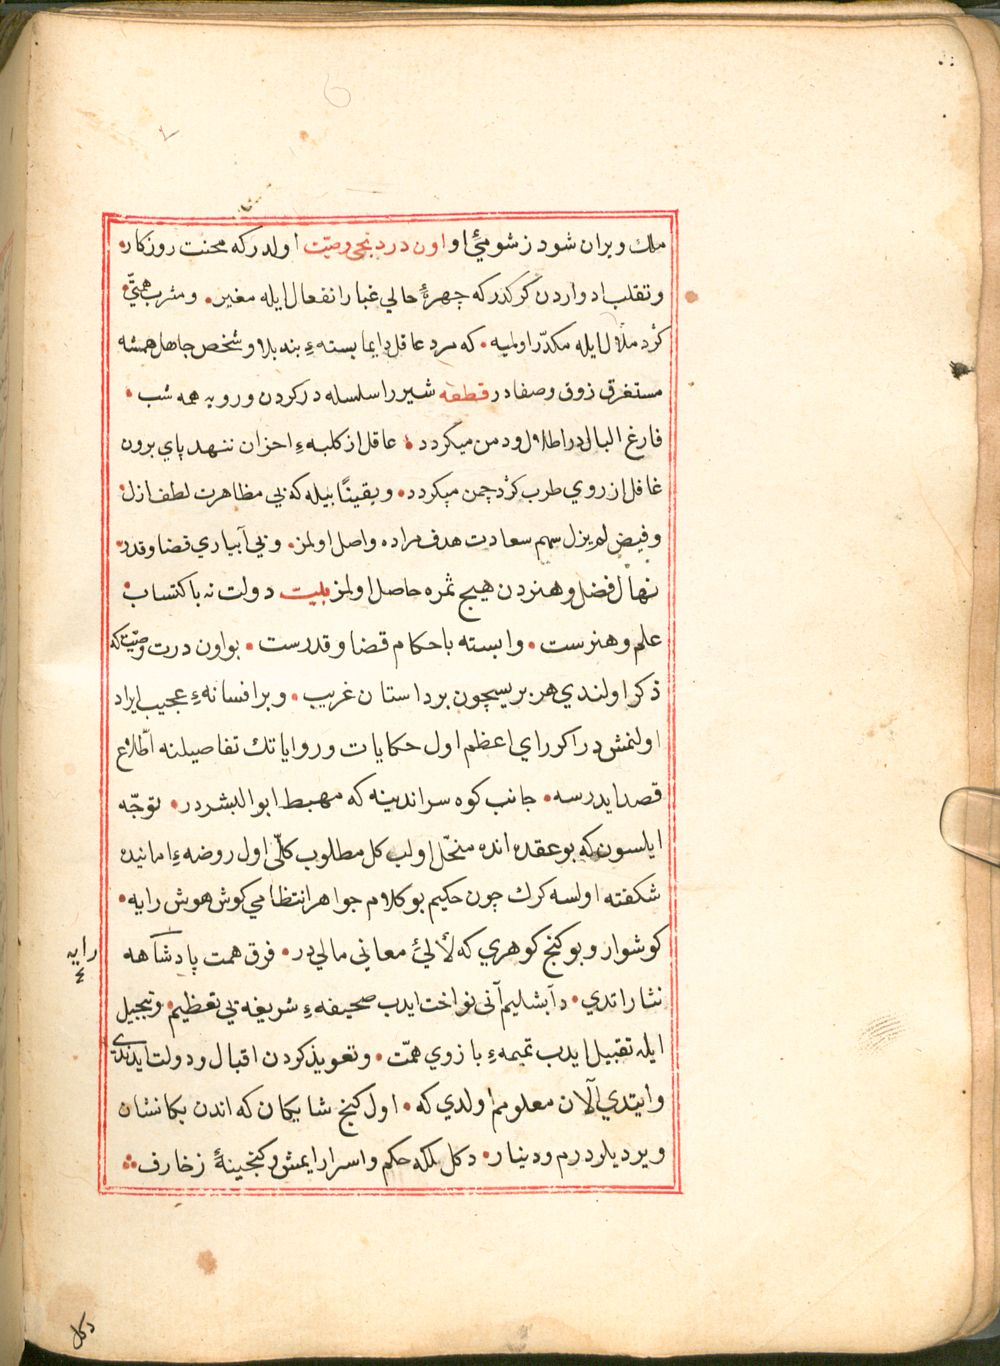 ملك ويران شود ز شومئ او اون دردنجى وصيّت اولدركه محنت روزكار •
وتقلب ادواردن كركدركه چهرۀ حالي غبار انفعال ايله مغبر • ومشرب همّتي •
كرد ملال ايله مكدّر اولميه • كه مرد عاقل دايما بسته ء بند بلا و شخص جاهل هميشه
مستغرق ذوق وصفادر قطعه شير را سلسله در كردن وروبه همه شب •
فارغ البال در اطلال ودمن ميكردد • عاقل از كلبه ء احزان ننهد پاي برون
غافل از روي طرب كرد چمن ميكردد • ويقينًا بيله كه بي مظاهرت لطف ازل
وفيض لم يزل سهم سعادت هدف مراده واصل اولمز • وبي آبياري قضا وقدر •
نهال فضل وهنردن هيچ ثمره حاصل اولمز بيت دولت نه باكتساب •
علم وهنرست • وابسته باحكام قضا وقدرست • بو اون درت وصيّت كه
ذكر اولندي هر بريسيچون بر داستان غريب • وبر افسانه ء عجيب ايراد
اولنمشدر اكر راي اعظم اول حكايات ورواياتك تفاصيلنه اطّلاع
قصد ايدرسه • جانب كوه سراندينه كه مهبط ابوالبشردر • توجّه
ايلسون كه بو عقده انده منحلّ اولب كل مطلوب كلّى اول روضه ء امانيده
شكفته اولسه كرك چون حكيم بو كلام جواهر انتظامي كوش هوش رايه •
كوشوار وبو كنج كوهري كه لألئ معاني مالي در • فرق همت پادشاهه
نثار اتدي • دابشليم آنى نواخت ايدب صحيفه ء شريفه يي تعظيم • وتبجيل
ايله تقبيل ايدب تميمه ء بازوي همّت • وتعويذ كردن اقبال ودولت ايدندي
وايتدي الآن معلومم اولدي كه • اول كنج شايكان كه اندن بكا نشان
ويرديلر درم ودينار • دكل بلكه حكم واسرار ايمش وكنجينۀ زخارف
رايه
دكل